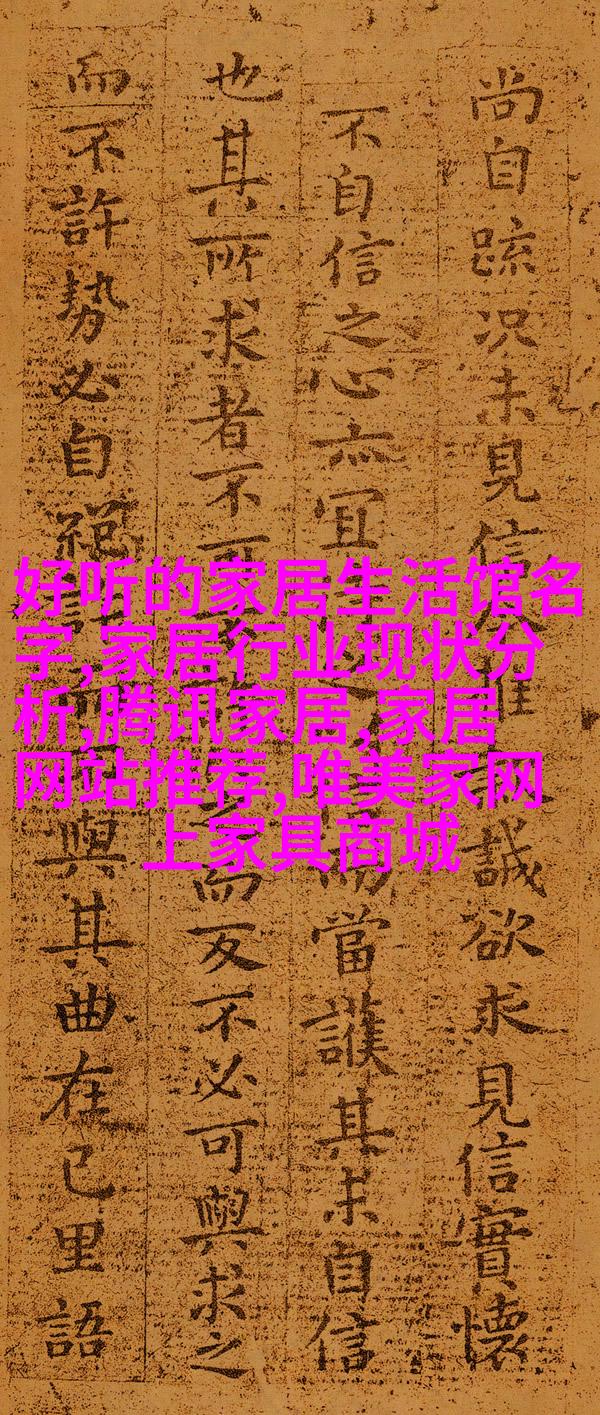 尚自疏况未見信推誠欲求見信實懷
不自信之心亦宜當護其未自信
也其所求者不可而反不必可與求之
而不許勢必自絕與其曲在己里語
好听的家居生活馆名
字,家居行业现状分
析,腾讯家居,家居
网站推荐,唯美家网
上家具商城